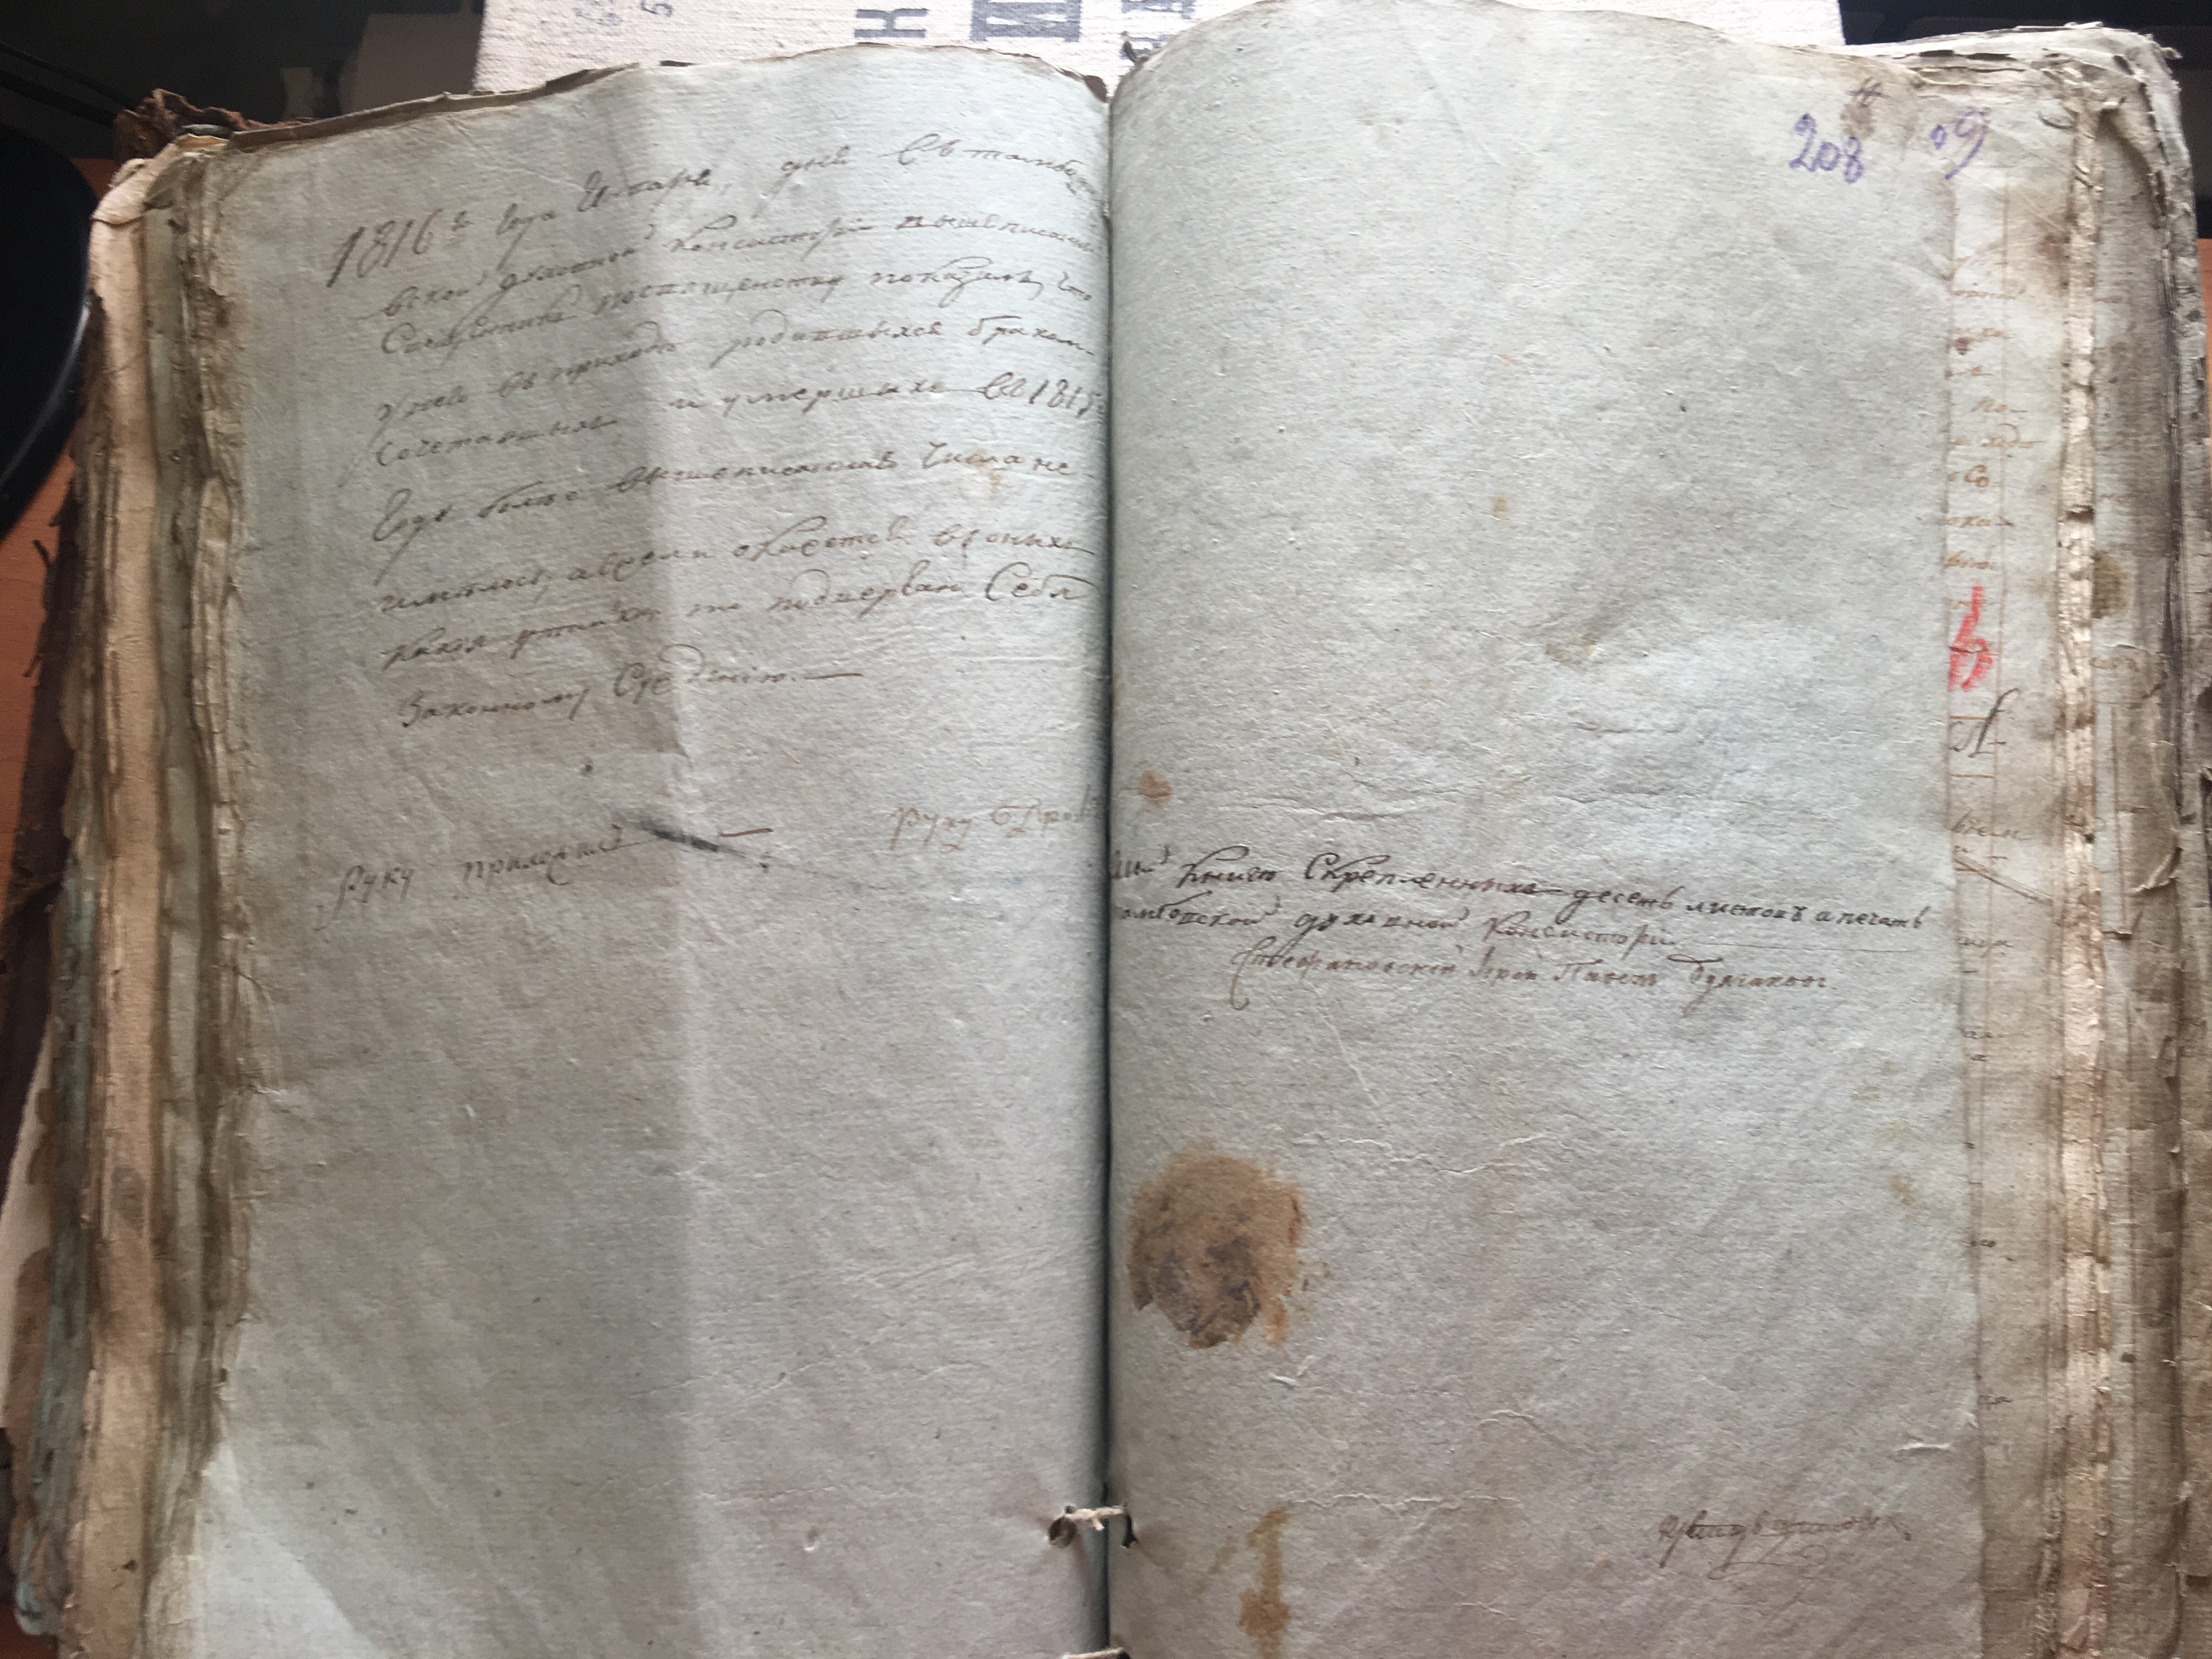 1816го года Генваря, дня Въ тамбо
вской духовной Консисторіи вышеписанные
Священники поспященству показали, что
у нихъ въ приходѣ родившихся бракомъ
сочетавшихся и умершихъ Въ 1815м
Годѣ болѣе вышеписанного Числа не
имѣлось, а если окажется въ оныхъ
какая утайка, то подвергаю Себя
Законному Сужденію.
Руку приложилъ
Руку
208
09
Книгѣ Скрепленныхъ десеть листовъ а печать
тамбовской духовной Консисторіи
Іерей Павелъ Булгаковъ